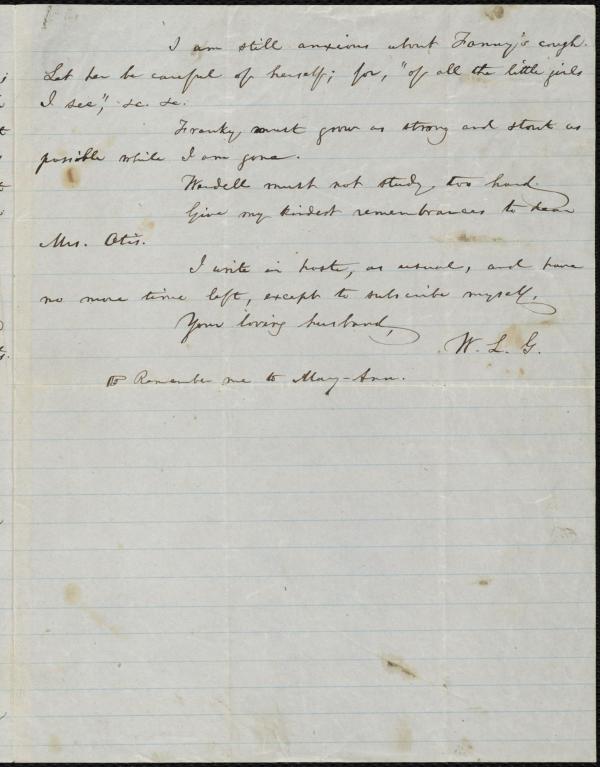 I am still anxious about Fanny's cough.
Let her be careful of herself; for, "of all the little girls
I see", &c. &c.
Franky must grow as strong and stout as
possible while I am gone.
Wendell must not study too hard.
Give my kindest remembrances to dear
Mrs. Otis.
I write in haste, as usual, and have
no more time left, except to subscribe myself,
Your loving husband,
W. L. G.
Remember me to Mary-Ann.